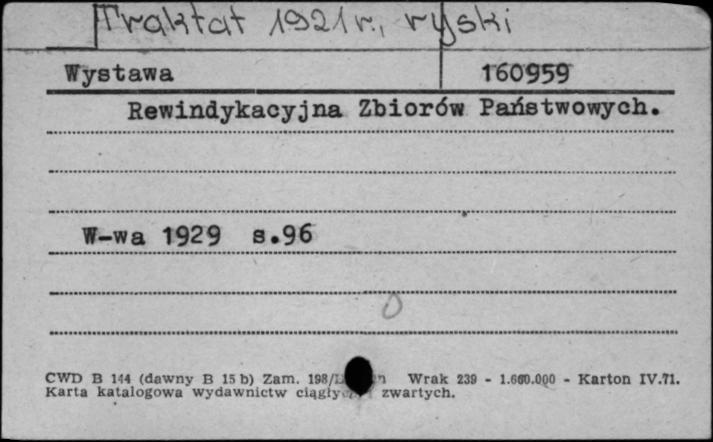 Traktat 1921 r., ryski
Wystawa 160959
Rewindykacyjna Zbiorów Państwowych.
W-wa 1929 s.96
0
CWD B 144 (dawny B 15 b) Zam. 198/ Wrak 239 - 1.660.000 - Karton IV.71.
Karta katalogowa wydawnictw zwartych.